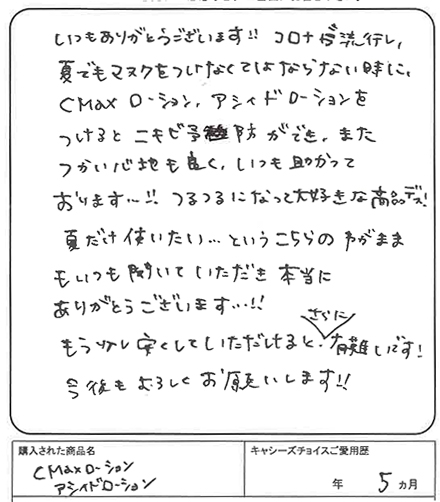 いつもありがとうございます!! コロナが流行し、
夏でもマスクをつけなくてはならない時に、
CMaxローション、アシィドローションを
つけるとニキビ予防ができ、また
つかい心地も良く、いつも助かって
おります…!! つるつるになって大好きな商品デス!
夏だけ使いたい…というこちらのわがまま
もいつも聞いていただき本当に
ありがとうございます…!!
さらに
もう少し安くしていただけると、有難いです!
今後もよろしくお願いします!!
購入された商品名
CMaxローション
アシィドローション
キャシーズチョイスご愛用歴
年 5 カ月